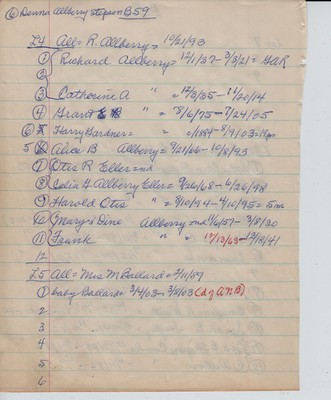 ⑥ Denna Allberry stepson B59
L4 All = R. Allberry = 10/21/93
① Richard Allberry = 12/1/37 - 3/3/21 = GAR
②
③ Catherine A " = 12/8/35 - 11/20/14
④ Grant E B " = 8/6/75 - 7/24/05
⑥ Harry Gardner = = c/1884 - 8/9/03 =
5 Alice B Allberry = 9/21/66 - 10/8/93
⑦ Otis R Eller = nd
⑧ Celia H. Allberry Eller = 9/26/68 - 6/26/98
⑨ Harold Otis " = 8/10/94 - 4/10/95 = 8 mo
⑩ Margie Dine Allberry = nd 11/6/57 - 3/8/30
⑪ Frank " " = 12/13/63 - 12/18/41
12
L5 All = Mrs M Ballard = 2/11/59
① baby Ballard = 3/4/03 - 3/5/03 (d of A & B)
2
3
4
5
6